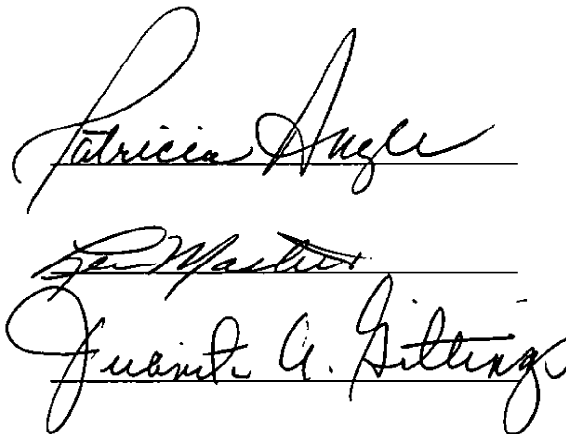 Patricia Angle
Ken Masters
Juanita A. Gittings